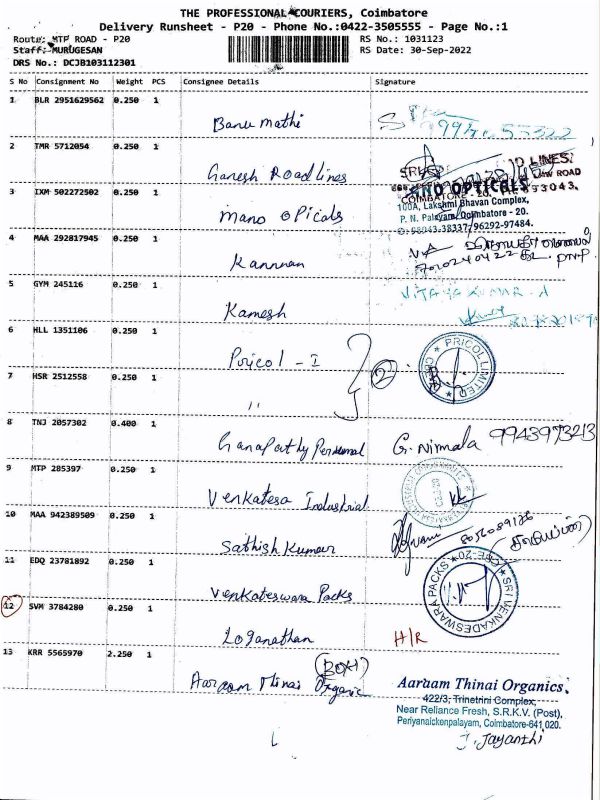 THE PROFESSIONAL COURIERS, Coimbatore
Delivery Runsheet - P20 - Phone No.:0422-3505555 - Page No.:1
Route: MTP ROAD - P20 RS No.: 1031123
Staff: MURUGESAN RS Date: 30-Sep-2022
DRS No.: DCJB103112301
S No Consignment No Weight PCS Consignee Details Signature
1 BLR 2951629562 0.250 1 Banu mathi
2 TMR 5712054 0.250 1 Ganesh Roadlines
COIMBATORE
3 IXM 502272502 0.250 1 mano oPicals OPTICALS
100A, Lakshmi Bhavan Complex,
P. N. Palayam, Coimbatore - 20.
4 MAA 292817945 0.250 1 Kannnan
5 GYM 245116 0.250 1 Kamesh VIJAYAKUMAR.A
6 HLL 1351106 0.250 1 Pricol - I 2 PRICOL LIMITED
7 HSR 2512558 0.250 1 "
8 TNJ 2057302 0.400 1 Ganapathy G. Nirmala 9943973213
9 MTP 285397 0.250 1 Venkatesa Industrial
10 MAA 942389509 0.250 1 Sathish Kumar
11 EDQ 23781892 0.250 1 Venkateswara Packs SRI VENKADESWARA PACKS CBE-20
12 SVM 3784280 0.250 1 Loganathan H/R
13 KRR 5565970 2.250 1 Aaraam Thinai Organic (BOX)
Aaruam Thinai Organics,
422/3, Trinetrini Complex,
Near Reliance Fresh, S.R.K.V. (Post),
Periyanaickenpalayam, Coimbatore-641 020.
J. Jayanthi